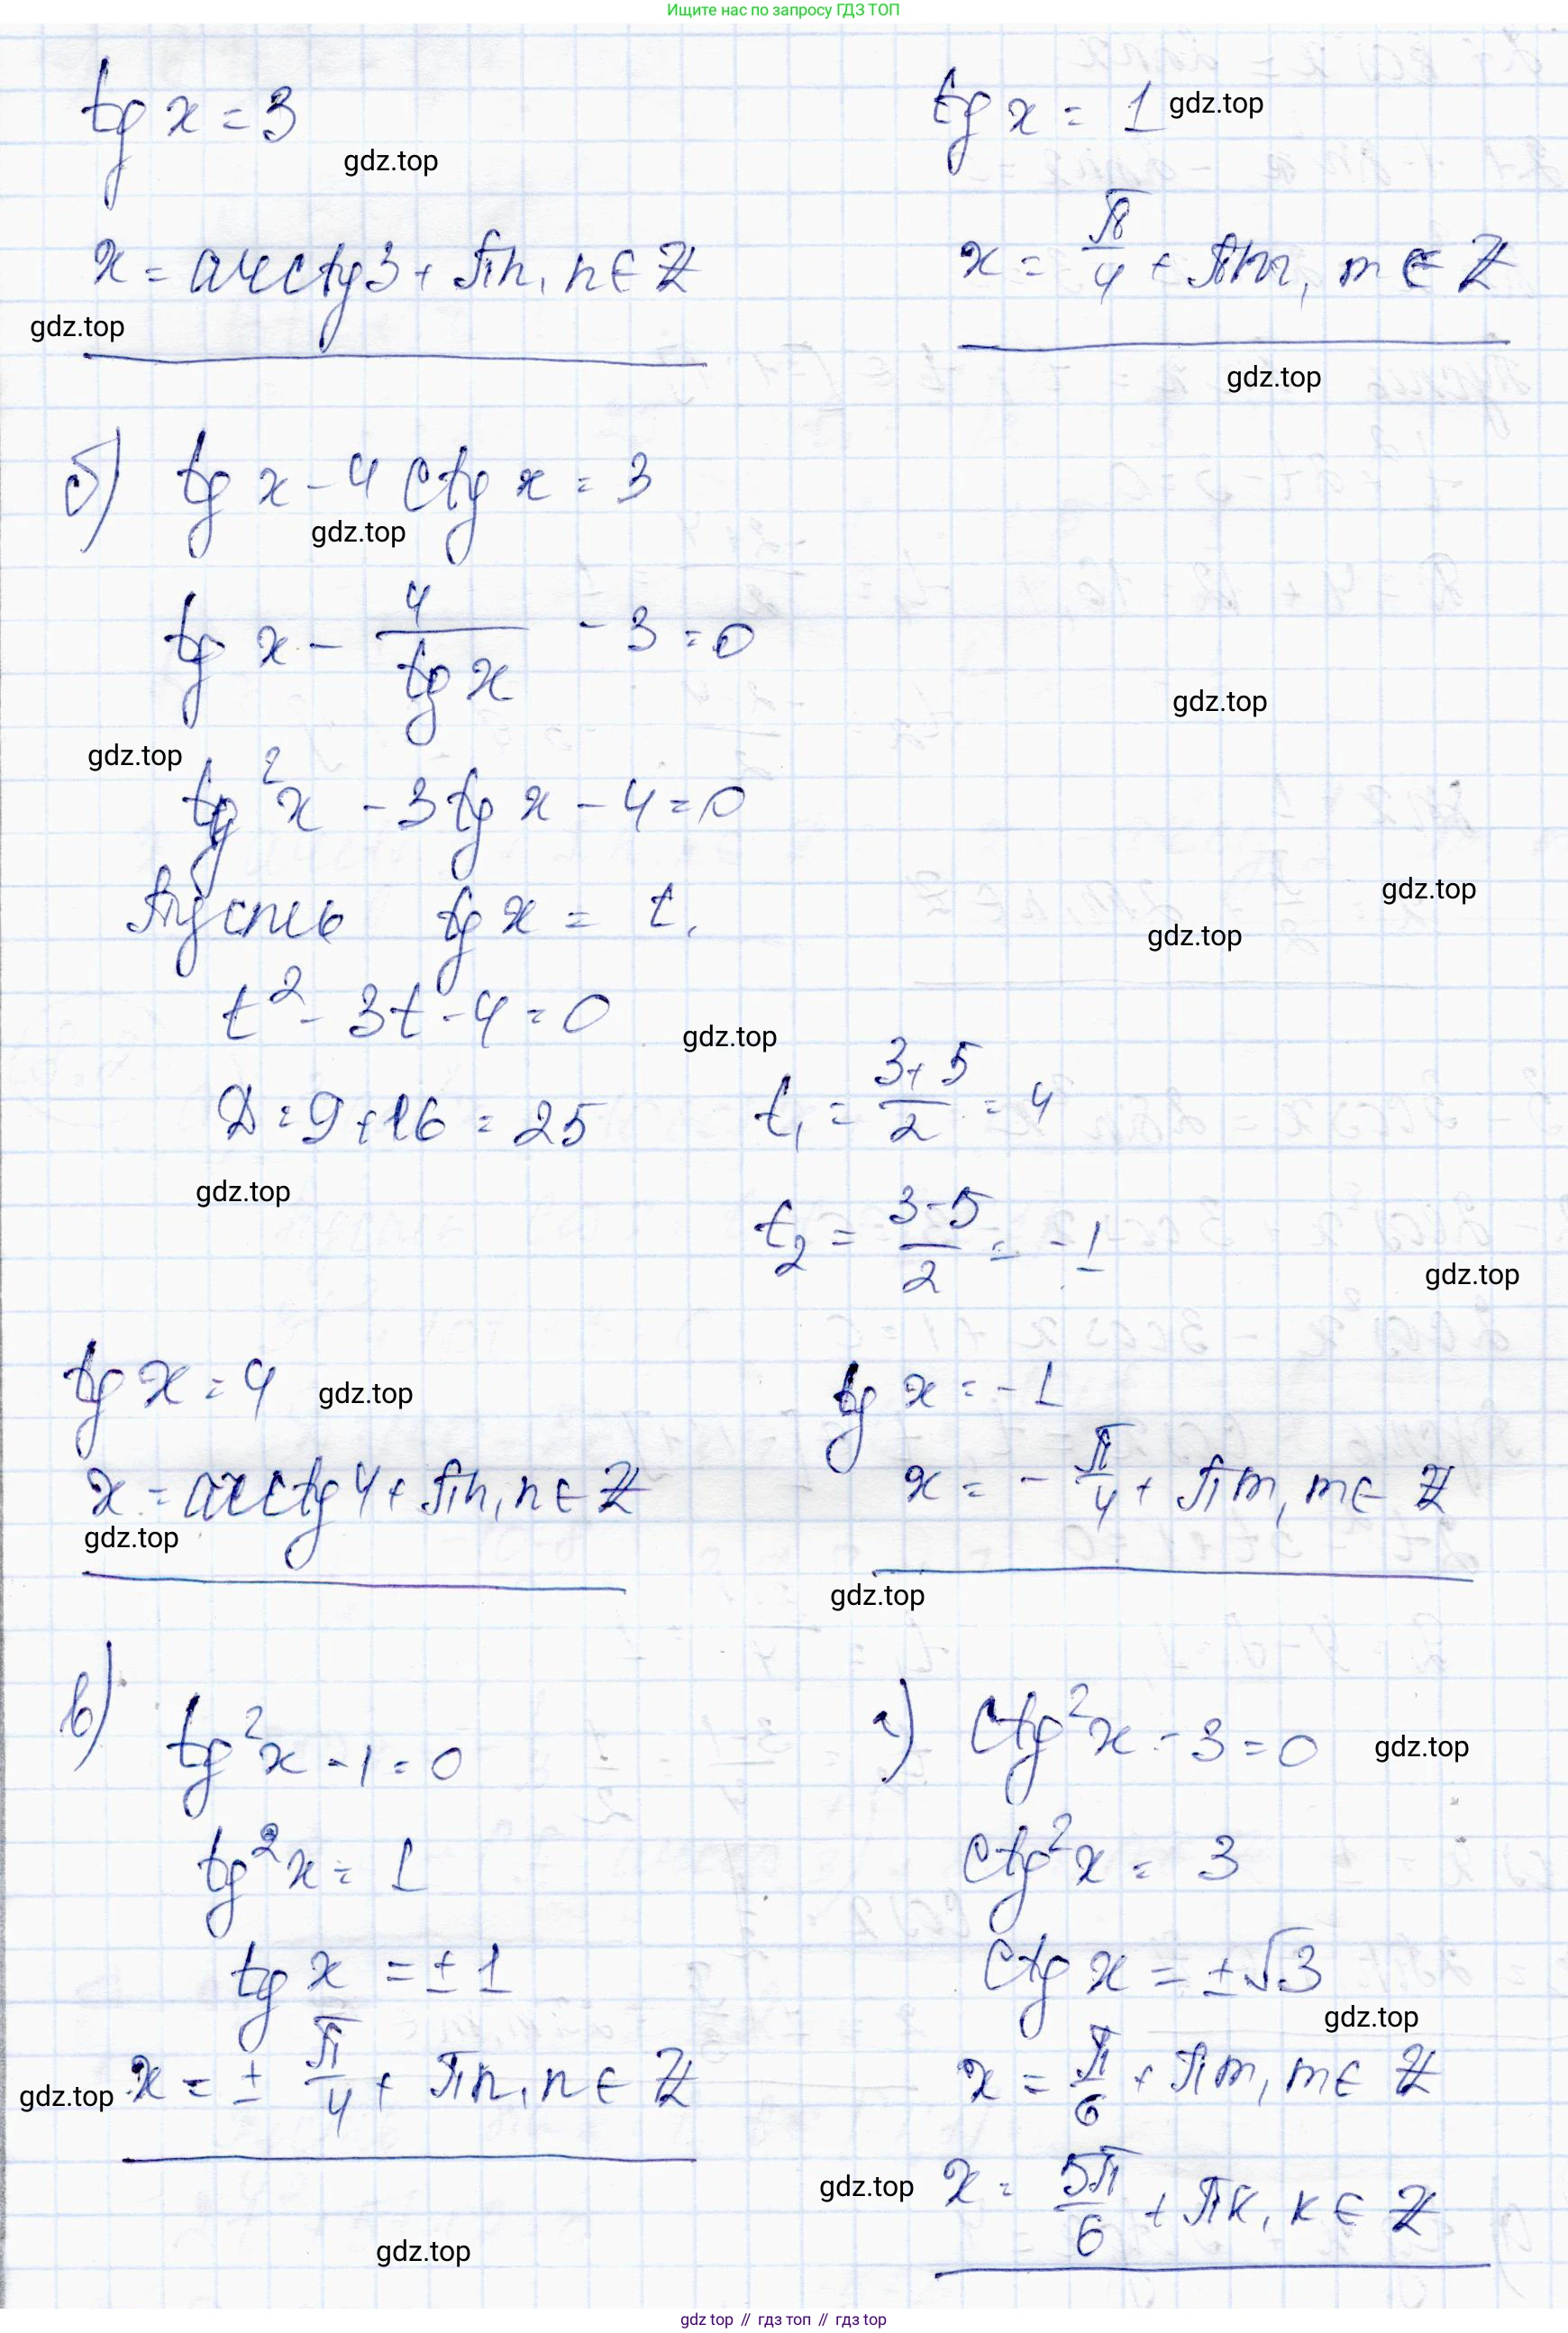 Ищите нас по запросу ГДЗ ТОП
tg x = 3
gdz.top
x = arctg 3 + πn, n ∈ Z
gdz.top
tg x = 1 gdz.top
x = π/4 + πm, m ∈ Z
gdz.top
б) tg x - 4 ctg x = 3
gdz.top
tg x - 4/tg x - 3 = 0
gdz.top
gdz.top
tg² x - 3 tg x - 4 = 0
Пусть tg x = t,
gdz.top
gdz.top
t² - 3t - 4 = 0
gdz.top
D = 9 + 16 = 25
t₁ = (3+5)/2 = 4
gdz.top
t₂ = (3-5)/2 = -1
gdz.top
tg x = 4 gdz.top
x = arctg 4 + πn, n ∈ Z
gdz.top
tg x = -1
x = -π/4 + πm, m ∈ Z
gdz.top
в) tg² x - 1 = 0
tg² x = 1
tg x = ±1
gdz.top x = ± π/4 + πn, n ∈ Z
gdz.top
г) ctg² x - 3 = 0 gdz.top
ctg² x = 3
ctg x = ±√3
gdz.top
x = π/6 + πm, m ∈ Z
gdz.top x = 5π/6 + πk, k ∈ Z
gdz top // гдз топ // гдз top